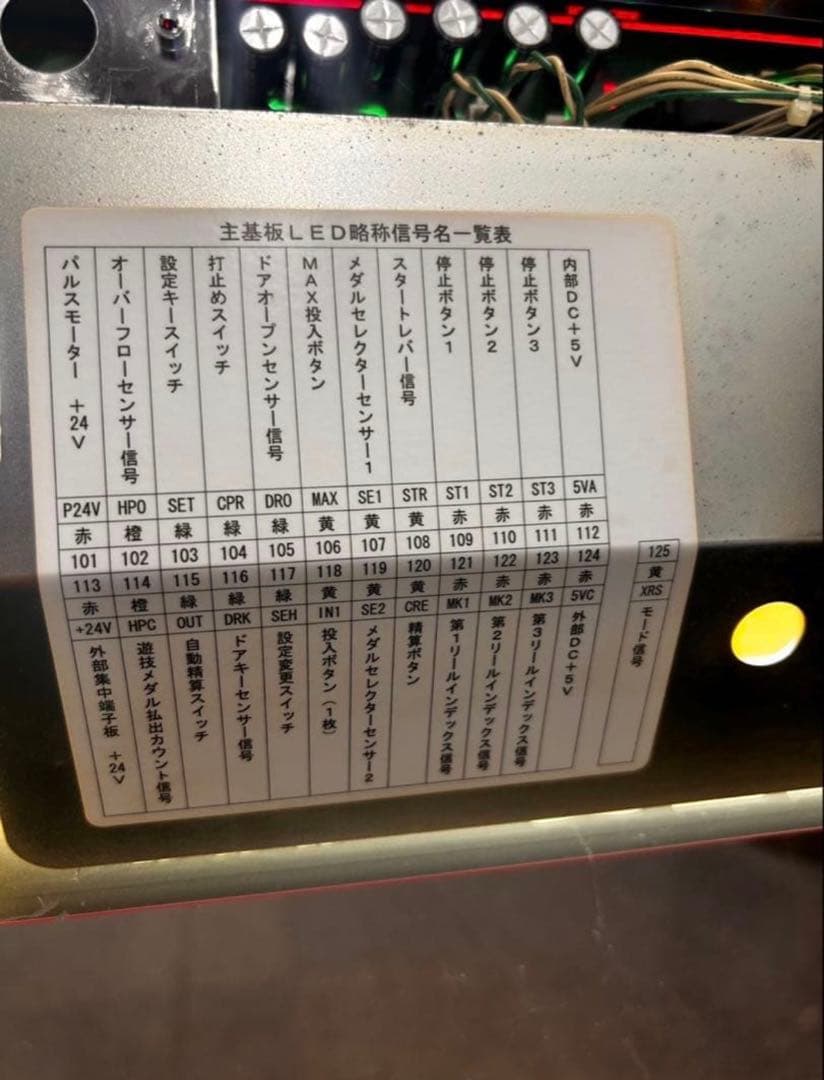 主基板LED略称信号名一覧表
パルスモーター +24V
オーバーフローセンサー信号
設定キースイッチ
打止めスイッチ
ドアオープンセンサー信号
MAX投入ボタン
メダルセレクターセンサー1
スタートレバー信号
停止ボタン1
停止ボタン2
停止ボタン3
内部DC+5V
P24V HPO SET CPR DRO MAX SE1 STR ST1 ST2 ST3 5VA
赤 橙 緑 緑 緑 黄 黄 黄 赤 赤 赤 赤
101 102 103 104 105 106 107 108 109 110 111 112
113 114 115 116 117 118 119 120 121 122 123 124 125
赤 橙 緑 緑 緑 黄 黄 黄 赤 赤 赤 赤 黄
+24V HPC OUT DRK SEH IN1 SE2 CRE MK1 MK2 MK3 5VC XRS
外部集中端子板 +24V
遊技メダル払出カウント信号
自動精算スイッチ
ドアキーセンサー信号
設定変更スイッチ
投入ボタン(1枚)
メダルセレクターセンサー2
精算ボタン
第1リールインデックス信号
第2リールインデックス信号
第3リールインデックス信号
外部DC+5V
モード信号